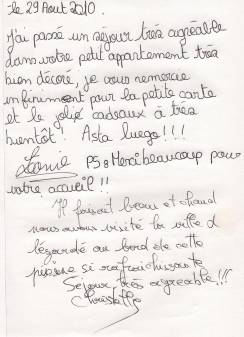 le 29 Aout 2010.
J'ai passé un séjour très agréable
dans votre petit appartement très
bien décoré, je vous remercie
infiniment pour la petite carte
et le jolie cadeaux à très
bientôt ! Asta luego !!!
Léonie PS : Merci beaucoup pour
votre accueil !!
Il faisait beau et chaud
nous avons visité la ville et
lézardé au bord de cette
piscine si rafraichissante
Séjour très agréable !!!